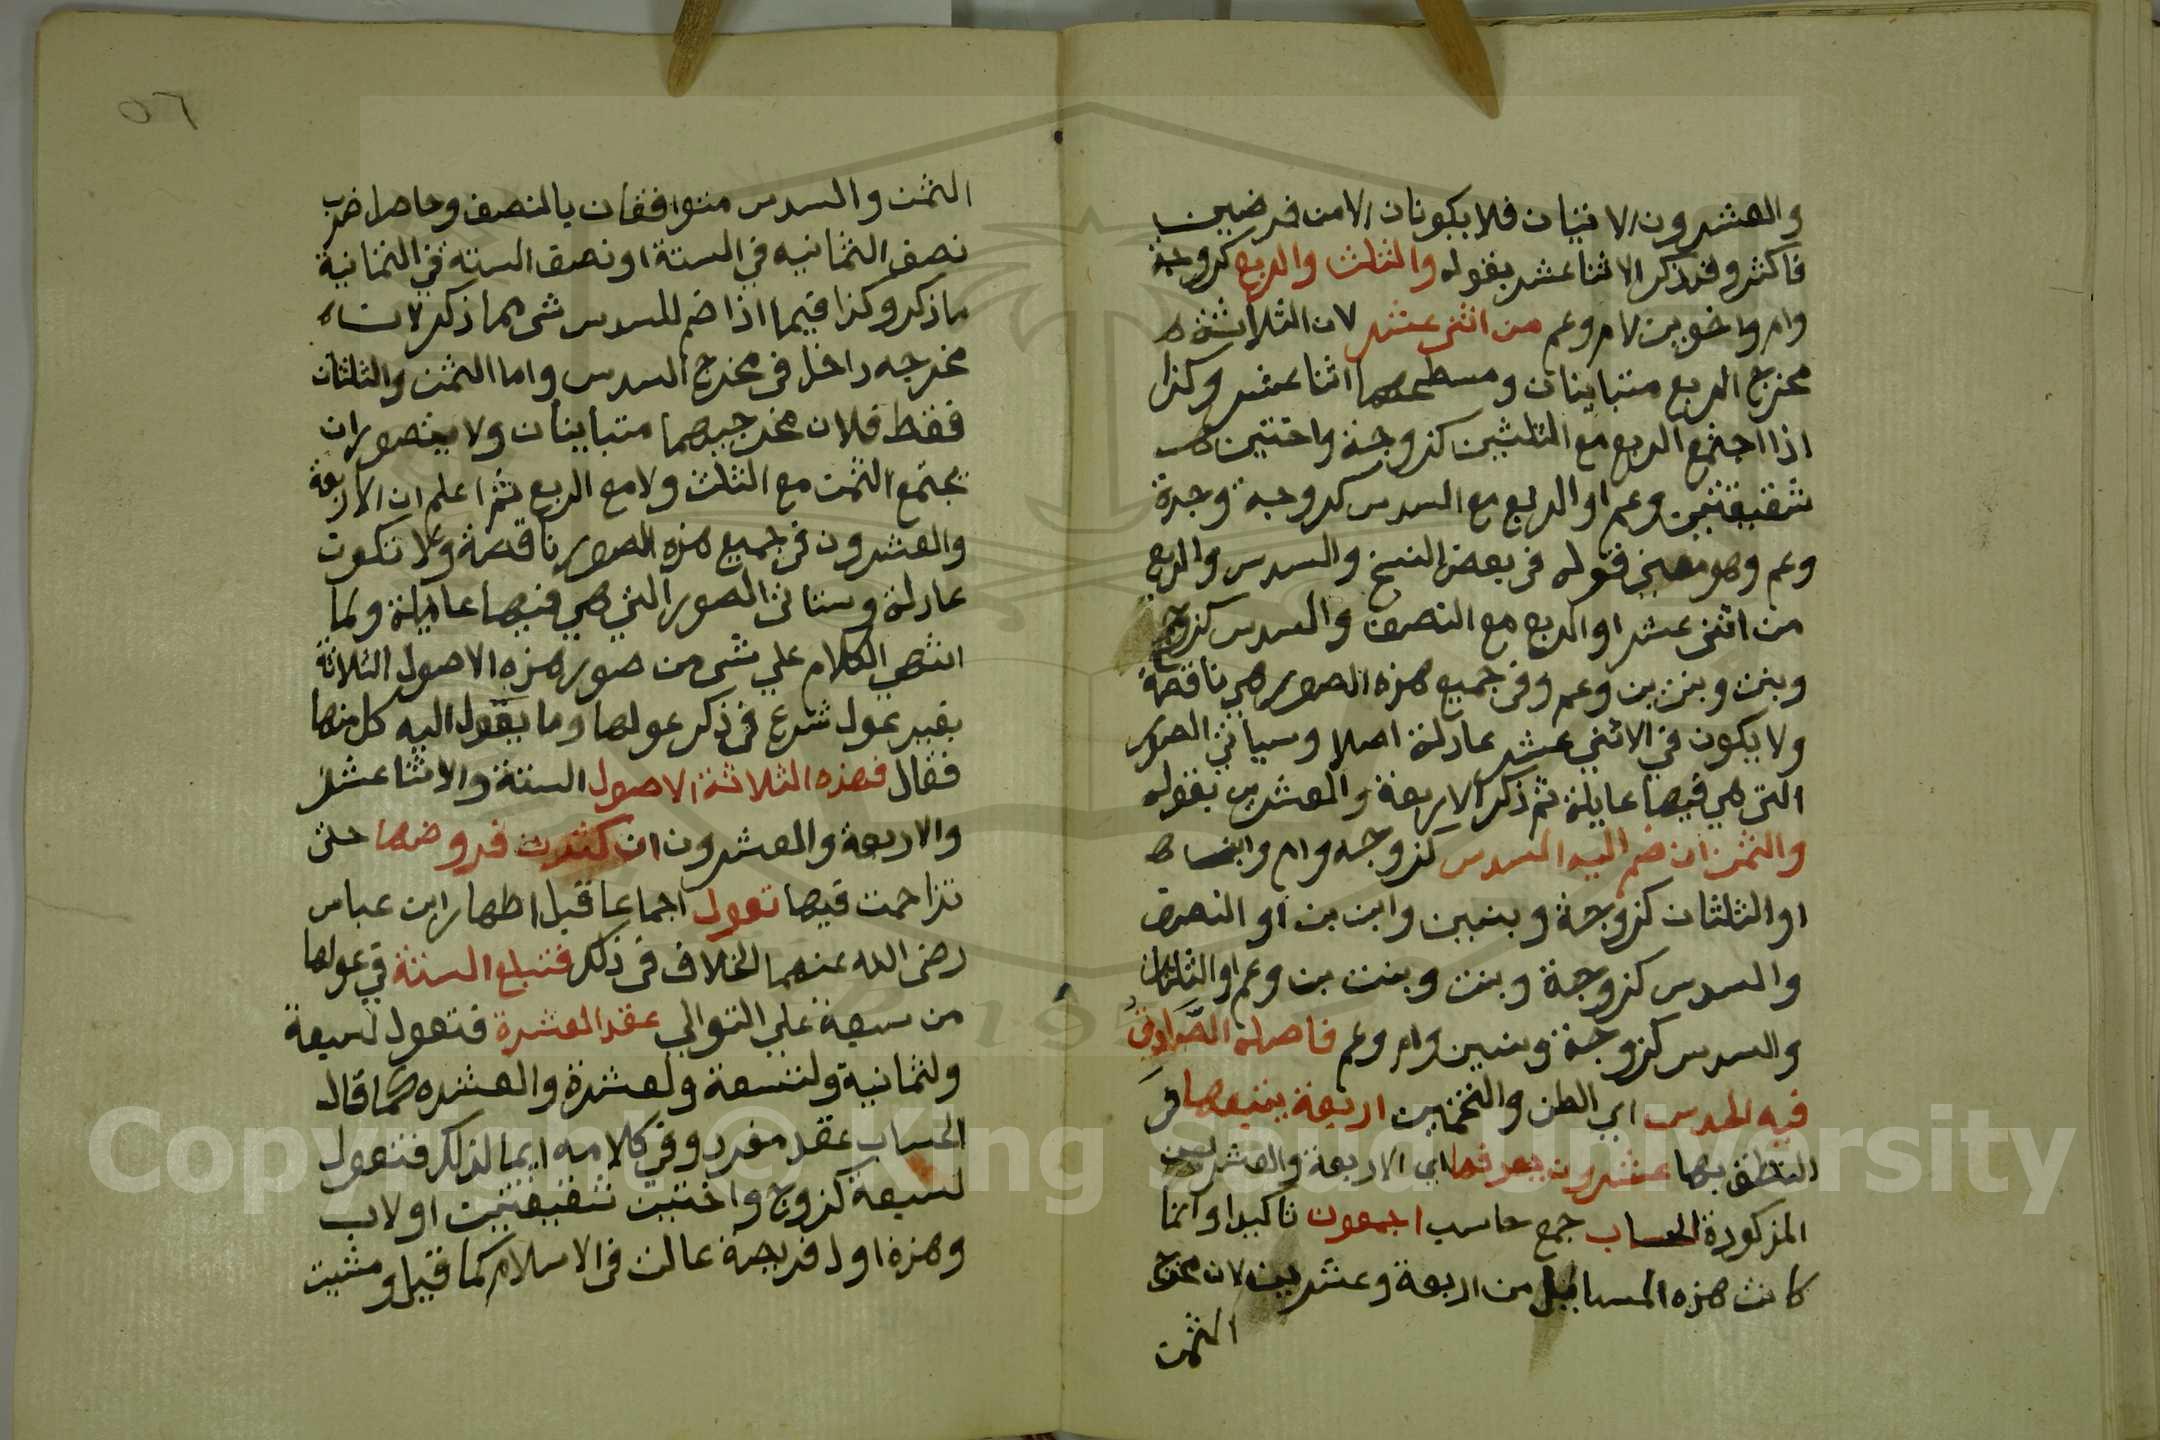 والعشرون الاثنيان فلا يكونان الا من فرضين
فاكثر وقد ذكر الاثنا عشر بقوله والثلث والربع كزوجة
وام واخوين لام وعم من اثني عشر لان الثلاثة
مخرج الربع متباينان ومسطحهما اثنا عشر وكذا
اذا اجتمع الربع مع الثلثين كزوجة واختين
شقيقتين وعم او الربع مع السدس كزوجة وجدة
وعم وهو معنى قوله في بعض النسخ والسدس والربع
من اثني عشر او الربع مع النصف والسدس كزوج
وبنت وبنت بن وعم وفي جميع هذه الصور هي ناقصة
ولا يكون في الاثني عشر عادلة اصلا وسياتي الصور
التي هي فيها عايلة ثم ذكر الاربعة والعشرين بقوله
والثمن ان ضم اليه السدس كزوجه وام وابن
او الثلثان كزوجة وبنتين وابن بن او النصف
والسدس كزوجة وبنت وبنت بن وعم او الثلثان
والسدس كزوجة وبنتين وام وعم فاصله الصادق
فيه الحدس اي الظن والتخمين اربعة يتبعها في
النطق بها عشرون يعرفها اي الاربعة والعشرين
المذكورة الحساب جمع حاسب اجمعون تاكيدا وانما
كانت هذه المسايل من اربعة وعشرين لان مخرج
الثمن
٥٦
الثمن والسدس متوافقان بالنصف وحاصل ضرب
نصف الثمانيه في الستة او نصف الستة في الثمانية
ما ذكر وكذا فيما اذا ضم للسدس شى مما ذكر لان
مخرجه داخل في مخرج السدس واما الثمن والثلثان
فقط فلان مخرجيهما متباينان ولا يتصور ان
يجتمع الثمن مع الثلث ولا مع الربع ثم اعلم ان الاربعة
والعشرون في جميع هذه الصور ناقصة ولا تكون
عادلة وستاتي الصور التي هي فيها عايلة ولما
انتهي الكلام علي شى من صور هذه الاصول الثلاثة
بغير عول شرع في ذكر عولها وما يعول اليه كل منها
فقال فهذه الثلاثة الاصول الستة والاثنا عشر
والاربعة والعشرون ان كثرت فروضها حتى
تزاحمت فيها تعول اجماعا قبل اظهار ابن عباس
رضى الله عنهما الخلاف في ذلك فتبلغ الستة في عولها
من سبعة علي التوالي عقد العشرة فتعول لسبعة
ولثمانية ولتسعة ولعشرة والعشره كما قال
الحساب عقد مفرد وفي كلامه ايما لذلك فتعول
لسبعة كزوج واختين شقيقتين او لاب
وهذه اول فريضة عالت في الاسلام كما قيل ومثيت
Copyright © King Saud University